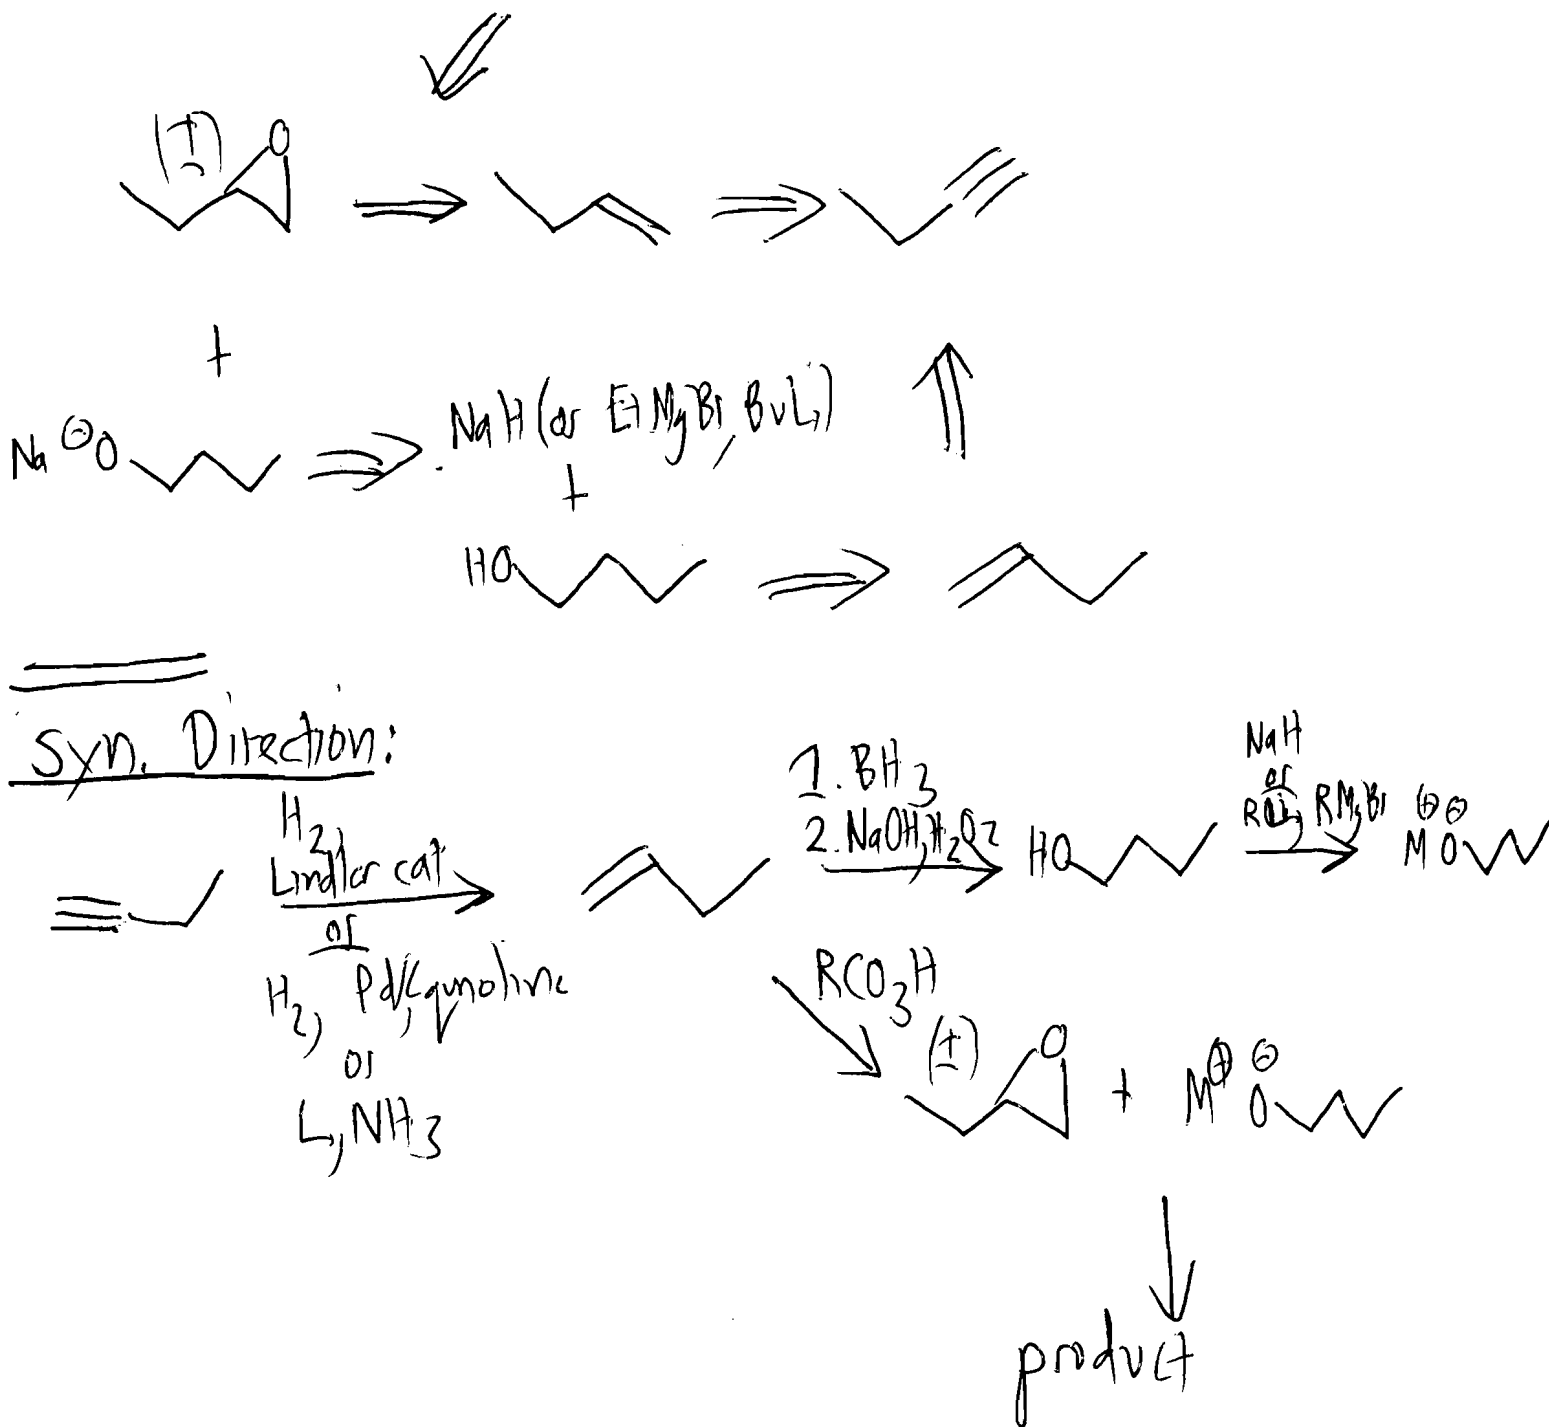 (±) O
+
Na ⊖O
NaH (or EtMgBr, BuLi)
+
HO
Syn. Direction:
H2,
Lindlar cat
or
H2, Pd/C, qunoline
or
Li, NH3
1. BH3
2. NaOH, H2O2
HO
NaH
or
RLi, RMgBr
⊕ ⊖
M O
RCO3H
(±) O
+
M⊕ ⊖
O
product